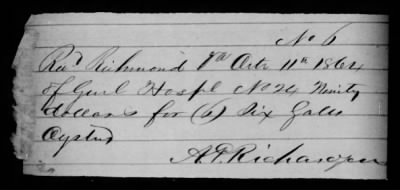 No 6
Recd Richmond Va Octr 11th 1864
of Genl Hospl No 24 Ninity
dollars for (6) Six Galls
Oysters